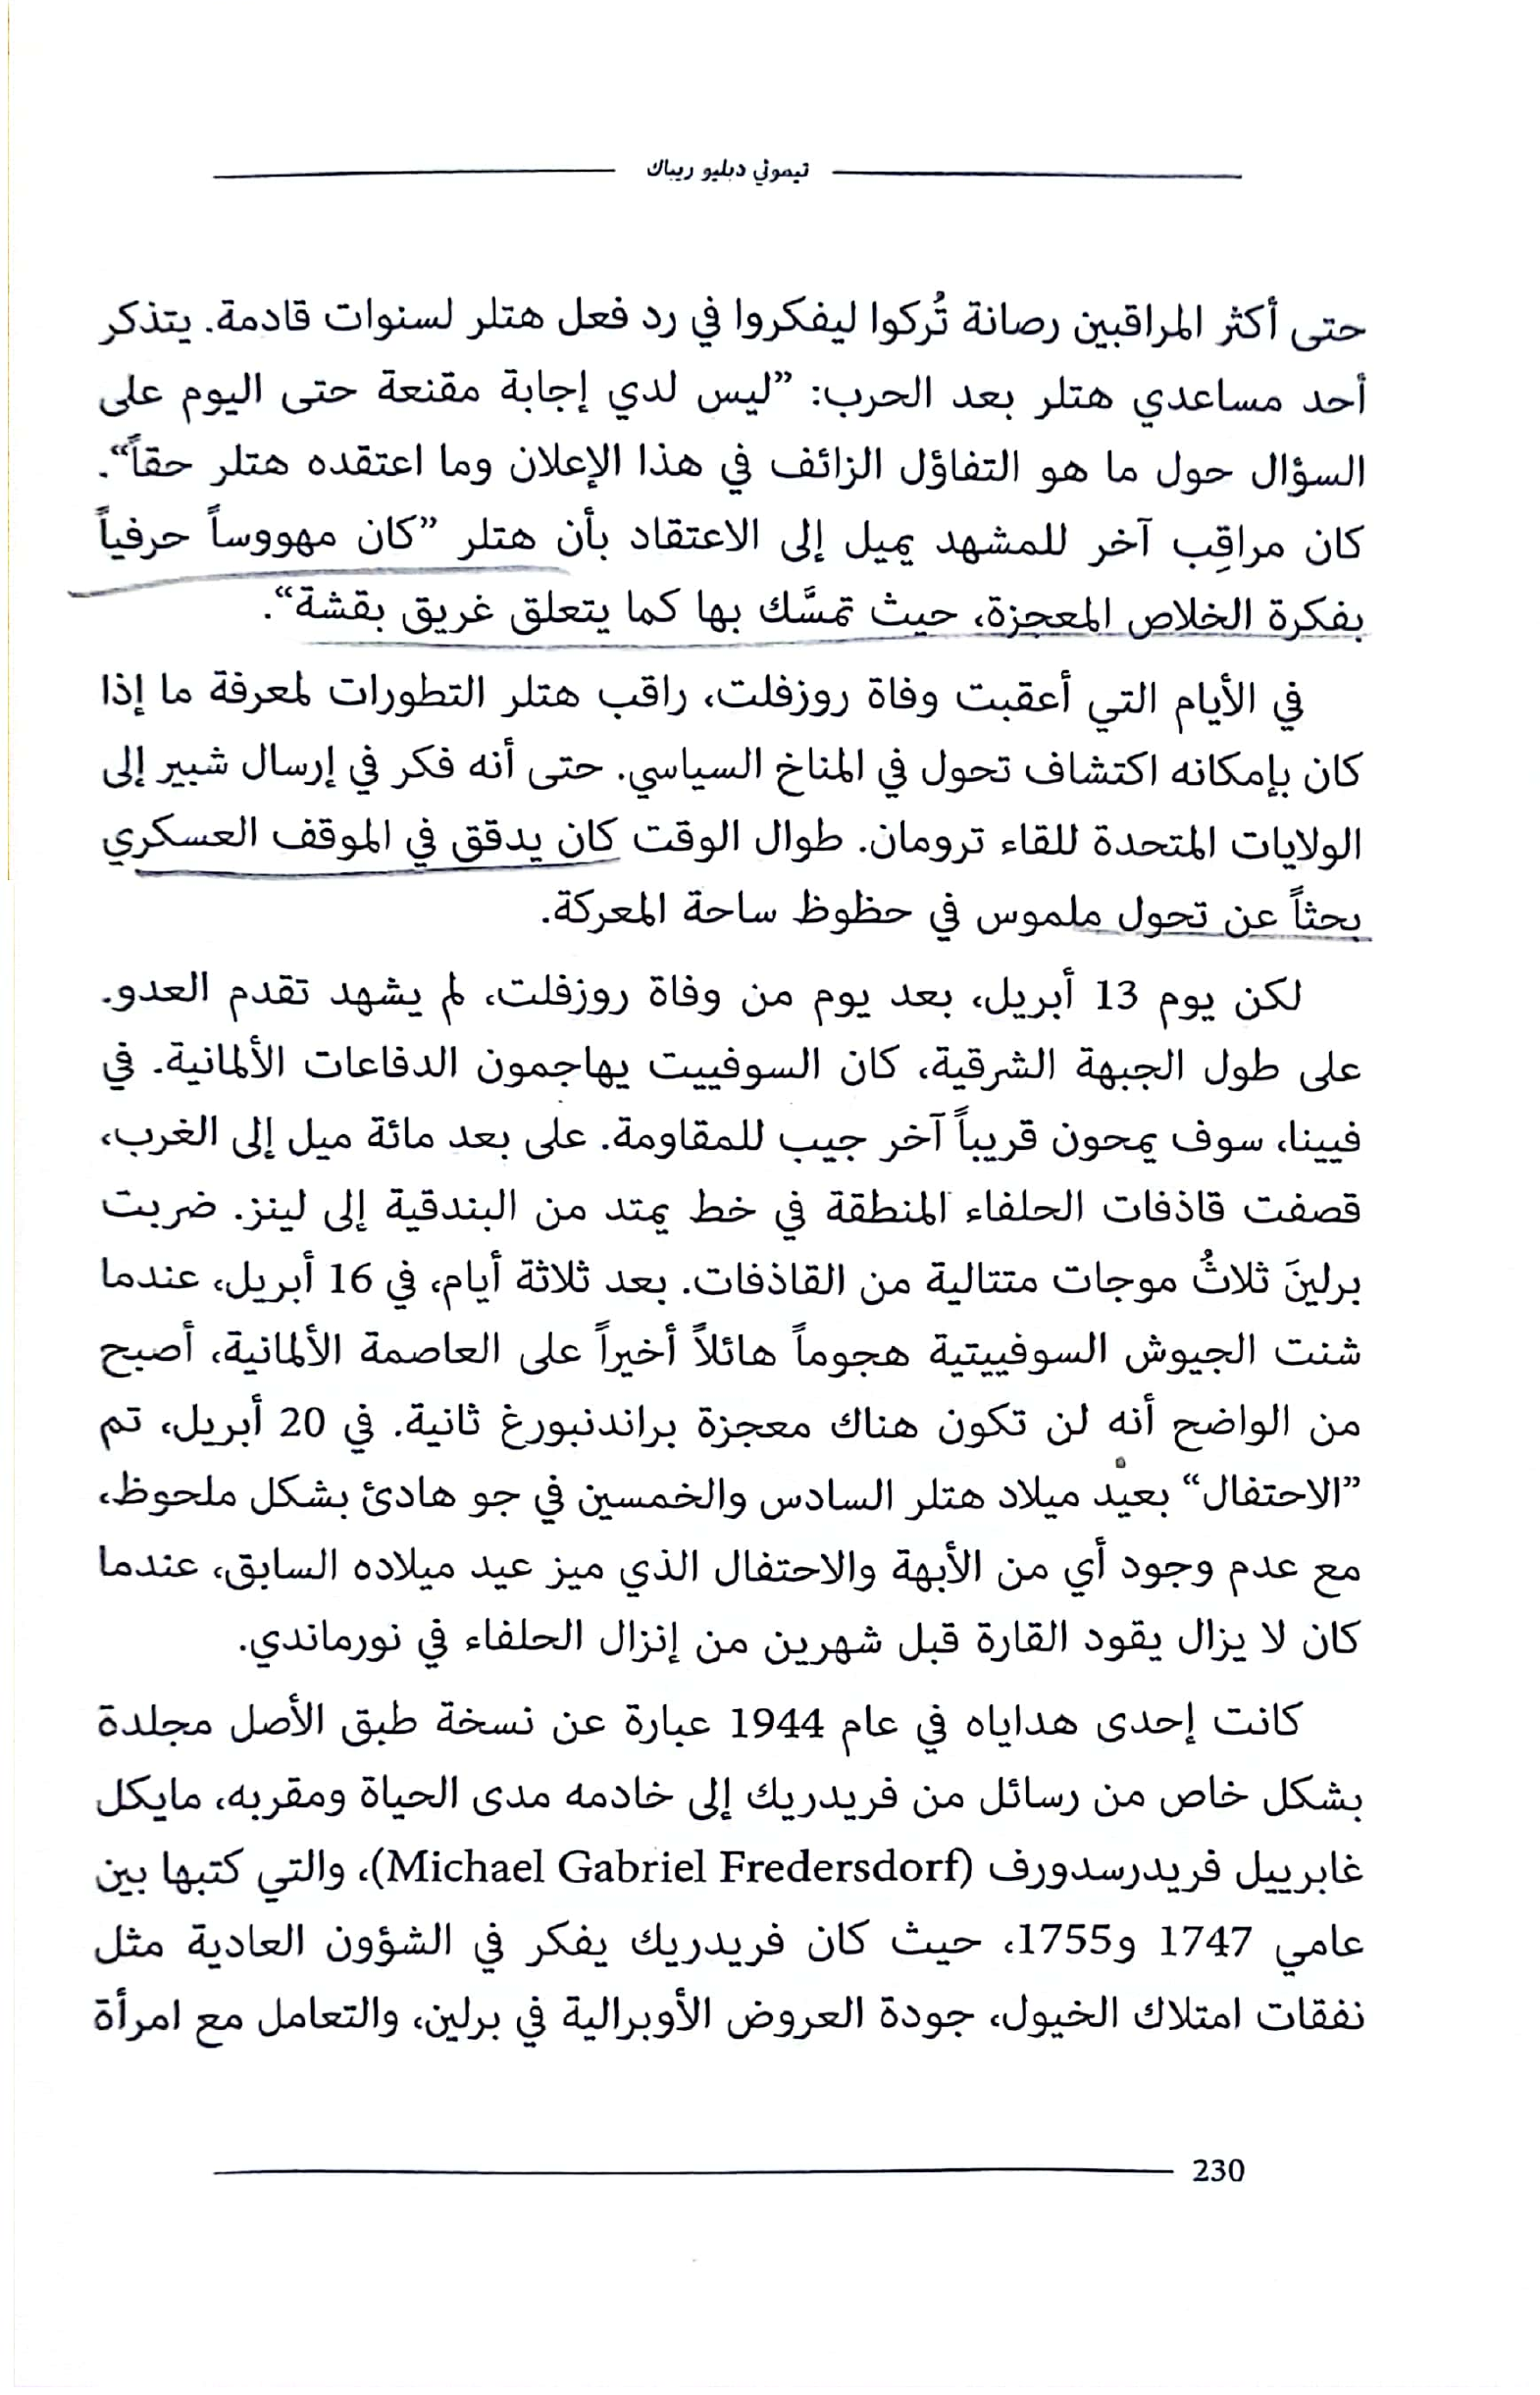 تيموثي دبليو ريباك
حتى أكثر المراقبين رصانة تُركوا ليفكروا في رد فعل هتلر لسنوات قادمة. يتذكر
أحد مساعدي هتلر بعد الحرب: ”ليس لدي إجابة مقنعة حتى اليوم على
السؤال حول ما هو التفاؤل الزائف في هذا الإعلان وما اعتقده هتلر حقاً“.
كان مراقِب آخر للمشهد يميل إلى الاعتقاد بأن هتلر ”كان مهووساً حرفياً
بفكرة الخلاص المعجزة، حيث تمسَّك بها كما يتعلق غريق بقشة“.
في الأيام التي أعقبت وفاة روزفلت، راقب هتلر التطورات لمعرفة ما إذا
كان بإمكانه اكتشاف تحول في المناخ السياسي. حتى أنه فكر في إرسال شبير إلى
الولايات المتحدة للقاء ترومان. طوال الوقت كان يدقق في الموقف العسكري
بحثاً عن تحول ملموس في حظوظ ساحة المعركة.
لكن يوم 13 أبريل، بعد يوم من وفاة روزفلت، لم يشهد تقدم العدو.
على طول الجبهة الشرقية، كان السوفييت يهاجمون الدفاعات الألمانية. في
فيينا، سوف يمحون قريباً آخر جيب للمقاومة. على بعد مائة ميل إلى الغرب،
قصفت قاذفات الحلفاء المنطقة في خط يمتد من البندقية إلى لينز. ضربت
برلينَ ثلاثُ موجات متتالية من القاذفات. بعد ثلاثة أيام، في 16 أبريل، عندما
شنت الجيوش السوفييتية هجوماً هائلاً أخيراً على العاصمة الألمانية، أصبح
من الواضح أنه لن تكون هناك معجزة براندنبورغ ثانية. في 20 أبريل، تم
”الاحتفال“ بعيد ميلاد هتلر السادس والخمسين في جو هادئ بشكل ملحوظ،
مع عدم وجود أي من الأبهة والاحتفال الذي ميز عيد ميلاده السابق، عندما
كان لا يزال يقود القارة قبل شهرين من إنزال الحلفاء في نورماندي.
كانت إحدى هداياه في عام 1944 عبارة عن نسخة طبق الأصل مجلدة
بشكل خاص من رسائل من فريدريك إلى خادمه مدى الحياة ومقربه، مايكل
غابرييل فريدرسدورف (Michael Gabriel Fredersdorf)، والتي كتبها بين
عامي 1747 و1755، حيث كان فريدريك يفكر في الشؤون العادية مثل
نفقات امتلاك الخيول، جودة العروض الأوبرالية في برلين، والتعامل مع امرأة
230